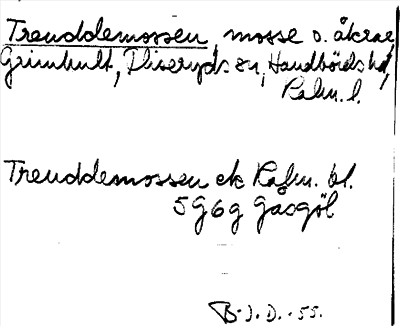 Treuddemossen, mosse o. åkrar,
Grimhult, Fliseryds sn, Handbörds hd,
Kalm. l.
Treuddemossen ek Kafm. bl.
5G6g Gasgöl
B.J.D. -55.